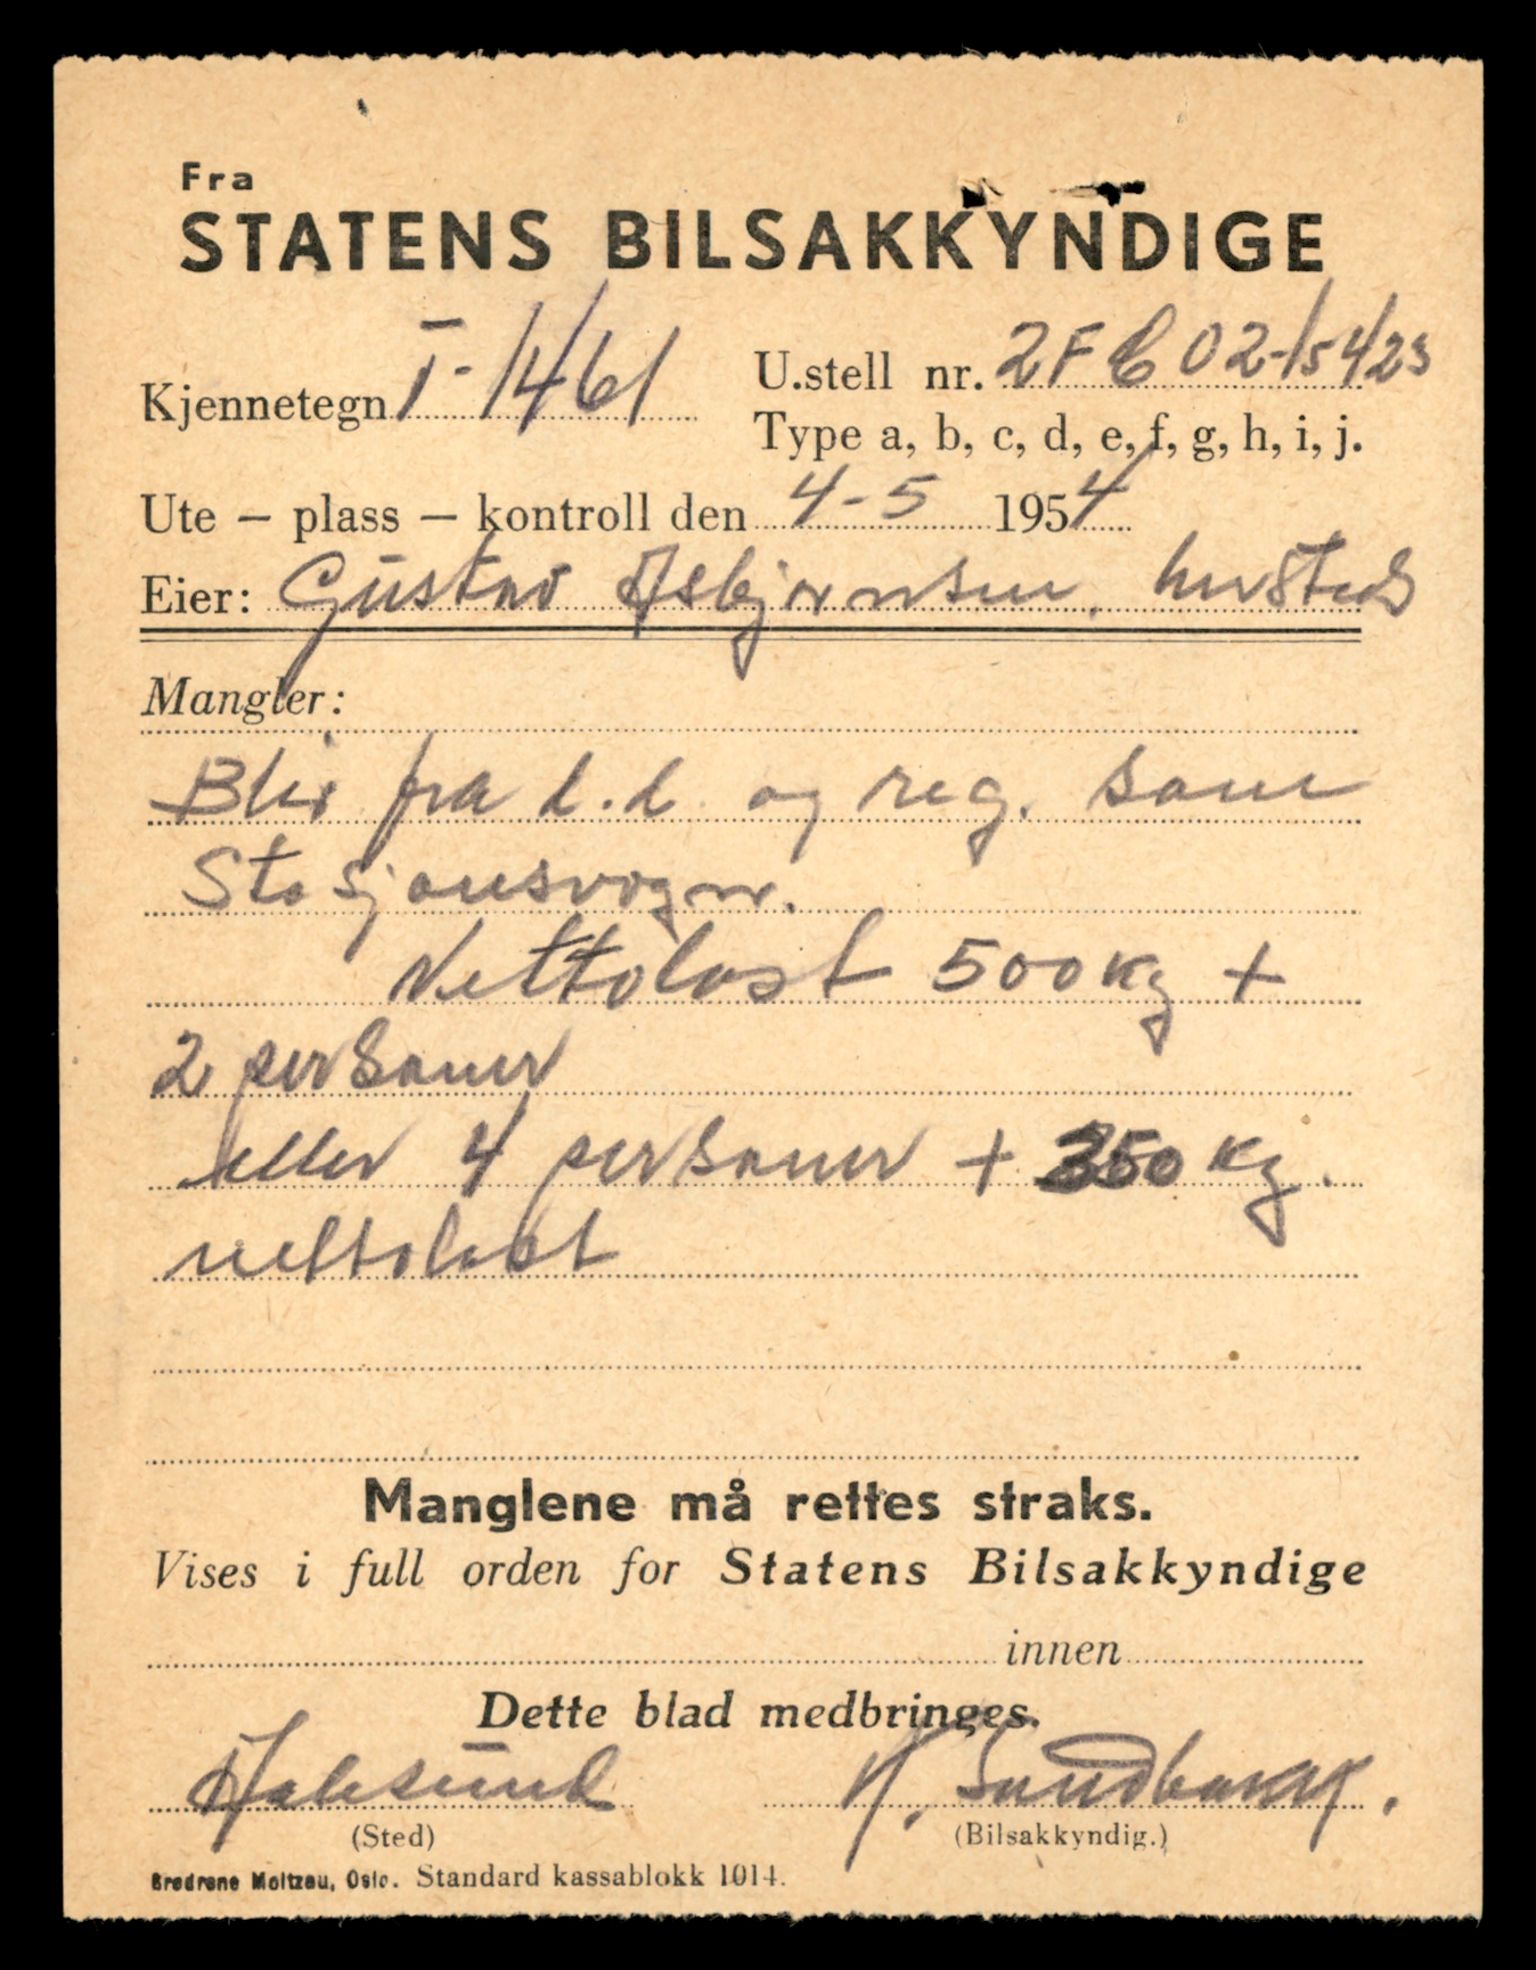 Fra
STATENS BILSAKKYNDIGE
Kjennetegn T-1461
U.stell nr. 2FC02-15423
Type a, b, c, d, e, f, g, h, i, j.
Ute – plass – kontroll den 4-5 1954
Eier: Gustav Asbjørnsen,
Mangler:
Blir fra d.d. og reg. som
Stasjonsvogn.
Nettolast 500 kg +
2 personer
eller 4 personer + 350 kg.
nettolast
Manglene må rettes straks.
Vises i full orden for Statens Bilsakkyndige
innen
Dette blad medbringes.
Aalesund K. Sundbarm.
(Sted) (Bilsakkyndig.)
Brødrene Moltzau, Oslo. Standard kassablokk 1014.